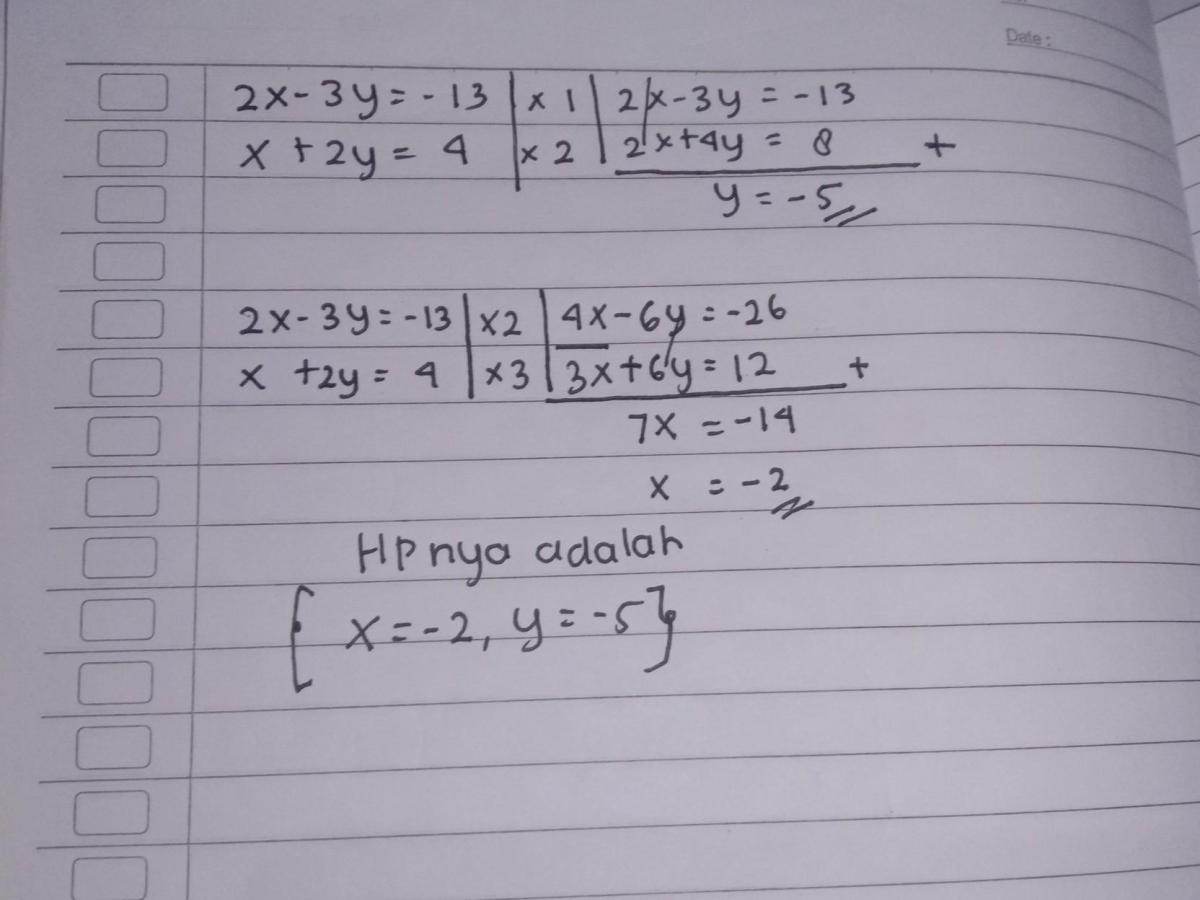 Date:
2x - 3y = -13 | x 1 | 2x - 3y = -13
x + 2y = 4 | x 2 | 2x + 4y = 8 +
y = -5
2x - 3y = -13 | x2 | 4x - 6y = -26
x + 2y = 4 | x3 | 3x + 6y = 12 +
7x = -14
x = -2
HP nya adalah
[ x = -2, y = -5 }